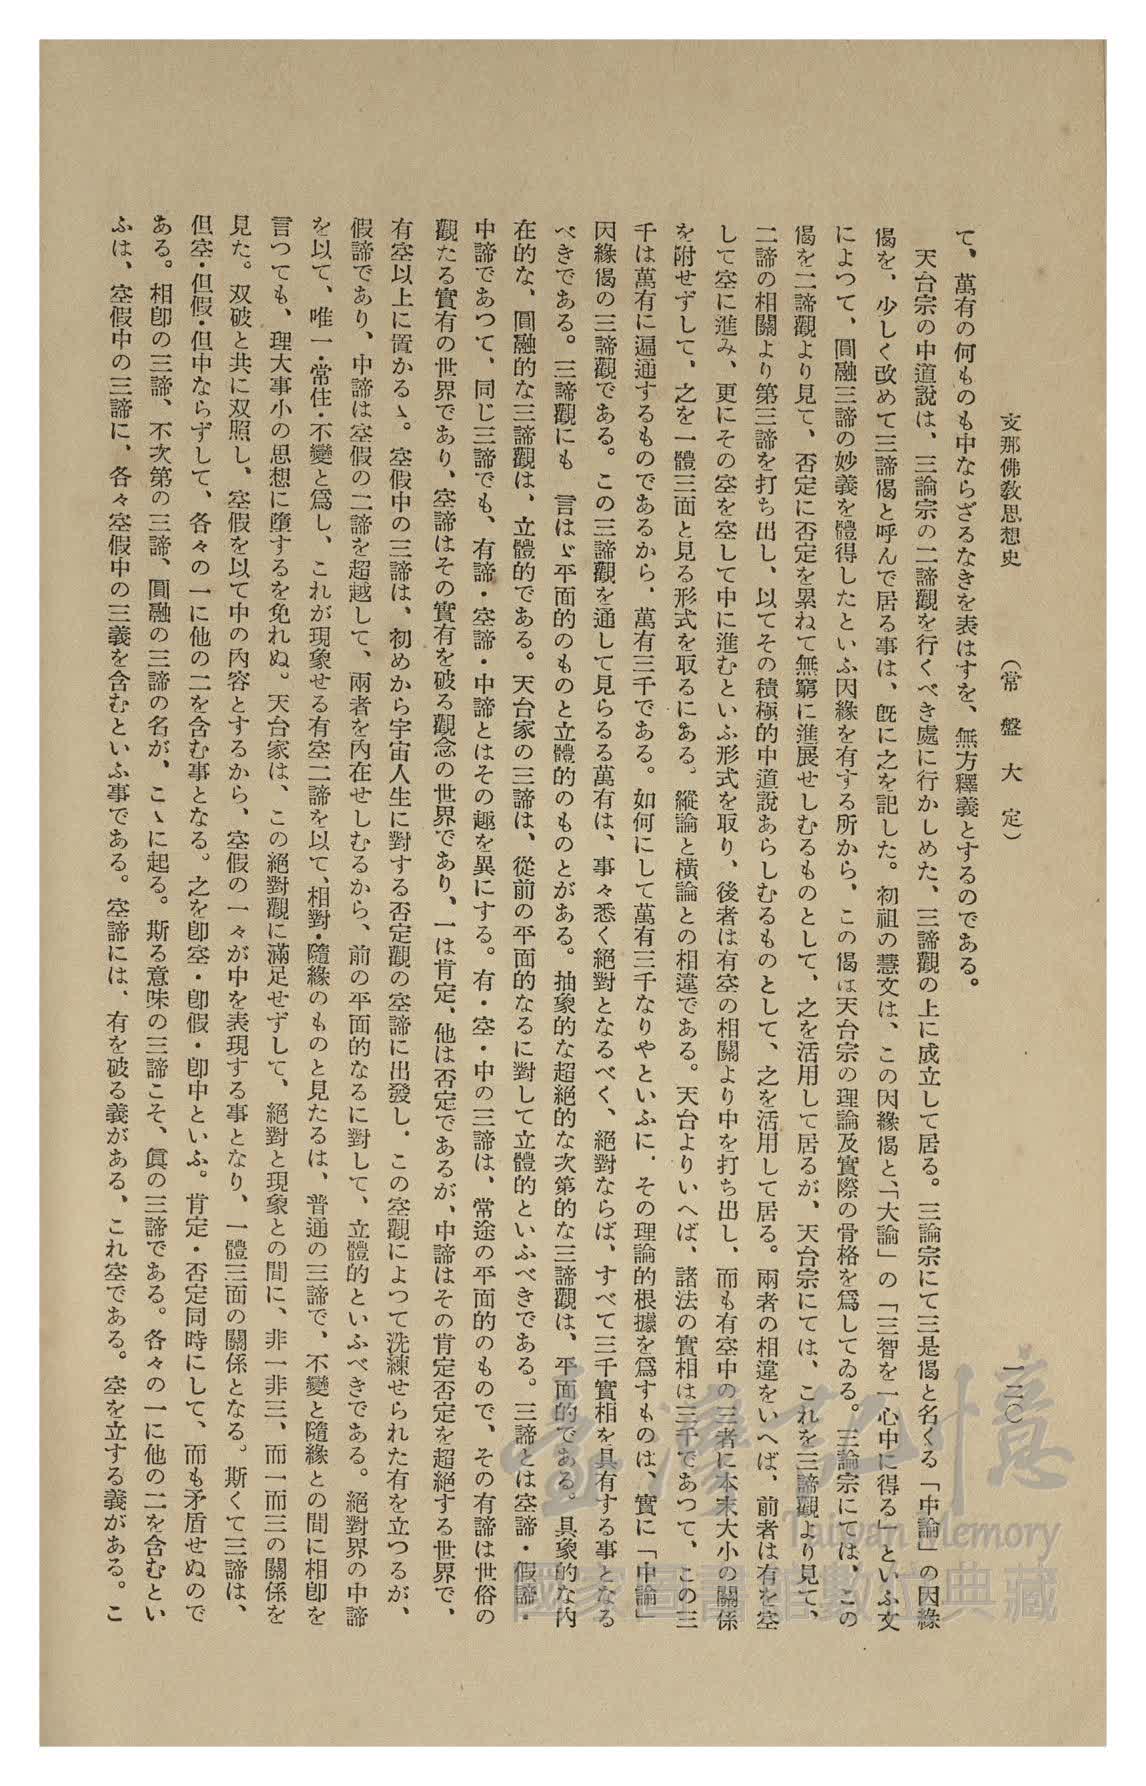 支那佛敎思想史　（常盤大定）　一二〇
て、萬有の何ものも中ならざるなきを表はすを、無方釋義とするのである。
天台宗の中道說は、三論宗の二諦觀を行くべき處に行かしめた、三諦觀の上に成立して居る。三論宗にて三是偈と名くる「中論」の因緣
偈を、少しく改めて三諦偈と呼んで居る事は、旣に之を記した。初祖の慧文は、この因緣偈と、「大論」の「三智を一心中に得る」といふ文
によつて、圓融三諦の妙義を體得したといふ因緣を有する所から、この偈は天台宗の理論及實際の骨格を爲してゐる。三論宗にては、この
偈を二諦觀より見て、否定に否定を累ねて無窮に進展せしむるものとして、之を活用して居るが、天台宗にては、これを三諦觀より見て、
二諦の相關より第三諦を打ち出し、以てその積極的中道說あらしむるものとして、之を活用して居る。兩者の相違をいへば、前者は有を空
して空に進み、更にその空を空して中に進むといふ形式を取り、後者は有空の相關より中を打ち出し、而も有空中の三者に本末大小の關係
を附せずして、之を一體三面と見る形式を取るにある。縱論と橫論との相違である。天台よりいへば、諸法の實相は三千であつて、この三
千は萬有に遍通するものであるから、萬有三千である。如何にして萬有三千なりやといふに、その理論的根據を爲すものは、實に「中論」
因緣偈の三諦觀である。この三諦觀を通して見らるる萬有は、事々悉く絕對となるべく、絕對ならば、すべて三千實相を具有する事となる
べきである。三諦觀にも　言はゞ平面的のものと立體的のものとがある。抽象的な超絕的な次第的な三諦觀は、平面的である。具象的な內
在的な、圓融的な三諦觀は、立體的である。天台家の三諦は、從前の平面的なるに對して立體的といふべきである。三諦とは空諦・假諦・
中諦であつて、同じ三諦でも、有諦・空諦・中諦とはその趣を異にする。有・空・中の三諦は、常途の平面的のもので、その有諦は世俗の
觀たる實有の世界であり、空諦はその實有を破る觀念の世界であり、一は肯定、他は否定であるが、中諦はその肯定否定を超絕する世界で、
有空以上に置かるゝ。空假中の三諦は、初めから宇宙人生に對する否定觀の空諦に出發し、この空觀によつて洗練せられた有を立つるが、
假諦であり、中諦は空假の二諦を超越して、兩者を內在せしむるから、前の平面的なるに對して、立體的といふべきである。絕對界の中諦
を以て、唯一・常住・不變と爲し、これが現象せる有空二諦を以て、相對・隨緣のものと見たるは、普通の三諦で、不變と隨緣との間に相卽を
言つても、理大事小の思想に墮するを免れぬ。天台家は、この絕對觀に滿足せずして、絕對と現象との間に、非一非三、而一而三の關係を
見た。双破と共に双照し、空假を以て中の內容とするから、空假の一々が中を表現する事となり、一體三面の關係となる。斯くて三諦は、
但空・但假・但中ならずして、各々の一に他の二を含む事となる。之を卽空・卽假・卽中といふ。肯定・否定同時にして、而も矛盾せぬので
ある。相卽の三諦、不次第の三諦、圓融の三諦の名が、こゝに起る。斯る意味の三諦こそ、眞の三諦である。各々の一に他の二を含むとい
ふは、空假中の三諦に、各々空假中の三義を含むといふ事である。空諦には、有を破る義がある、これ空である。空を立する義がある。こ
臺灣記憶
Taiwan Memory
國家圖書館數位典藏